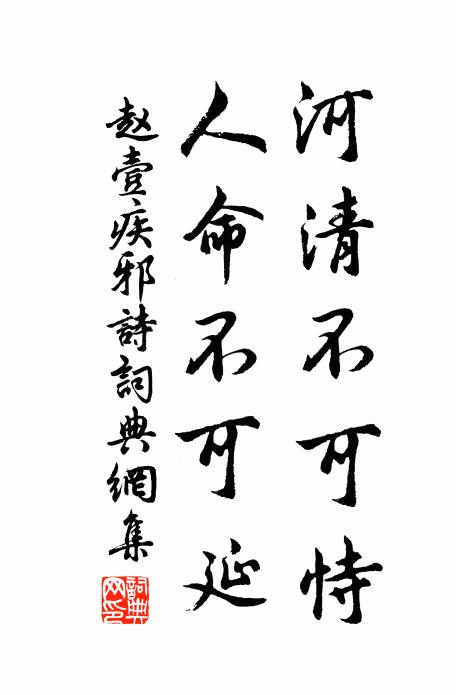 河清不可恃
人命不可延
赵壹疾邪詩詞典網集
詞典
网印